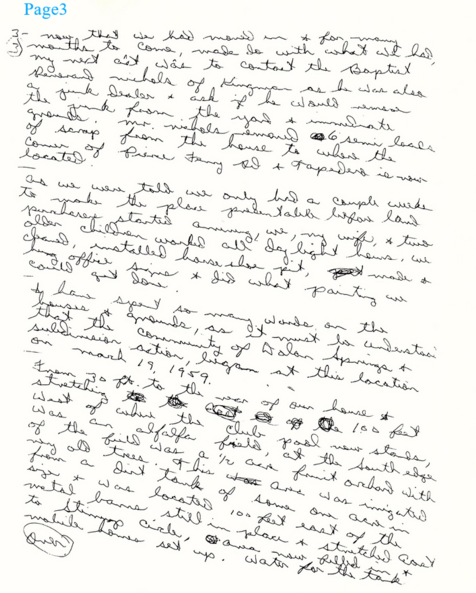 Page3
3- now that we had moved in & for many
3) months to come, made do with what we had,
my next act was to contact the Baptist
Reverend Nichols of Kingman as he was also
a junk dealer & ask if he would remove
the junk from the yard & immediate
grounds. Mr. Nichols removed 6 semi loads
of scrap from the house to where the
corner of Pierce Ferry Rd & is now
located.
As we were told we only had a couple weeks
to make the place presentable before land
purchasers started arriving, we, my wife, & two
older children worked all day light hours, we
cleaned, installed horse shoe pit, made &
hung office signs & did what painting we
could get done.
I have spent so many words on the
houses & grounds, as it must be understood
that the community of Dolan Springs &
subdivision action, began at this location
on March 19, 1959.
From 30 ft. to the rear of our house &
stretching to the 100 feet
west of where the club pool now stands,
was an alfalfa field, at the south edge
of the field was a 1/2 acre fruit orchard with
very old trees & this area was irrigated
from a dirt tank of some one acre in
size & was located 100 feet east of the
metal barns still in place & stretched East
to circle, area now filled in &
mobile homes set up. Water for the tank
Over